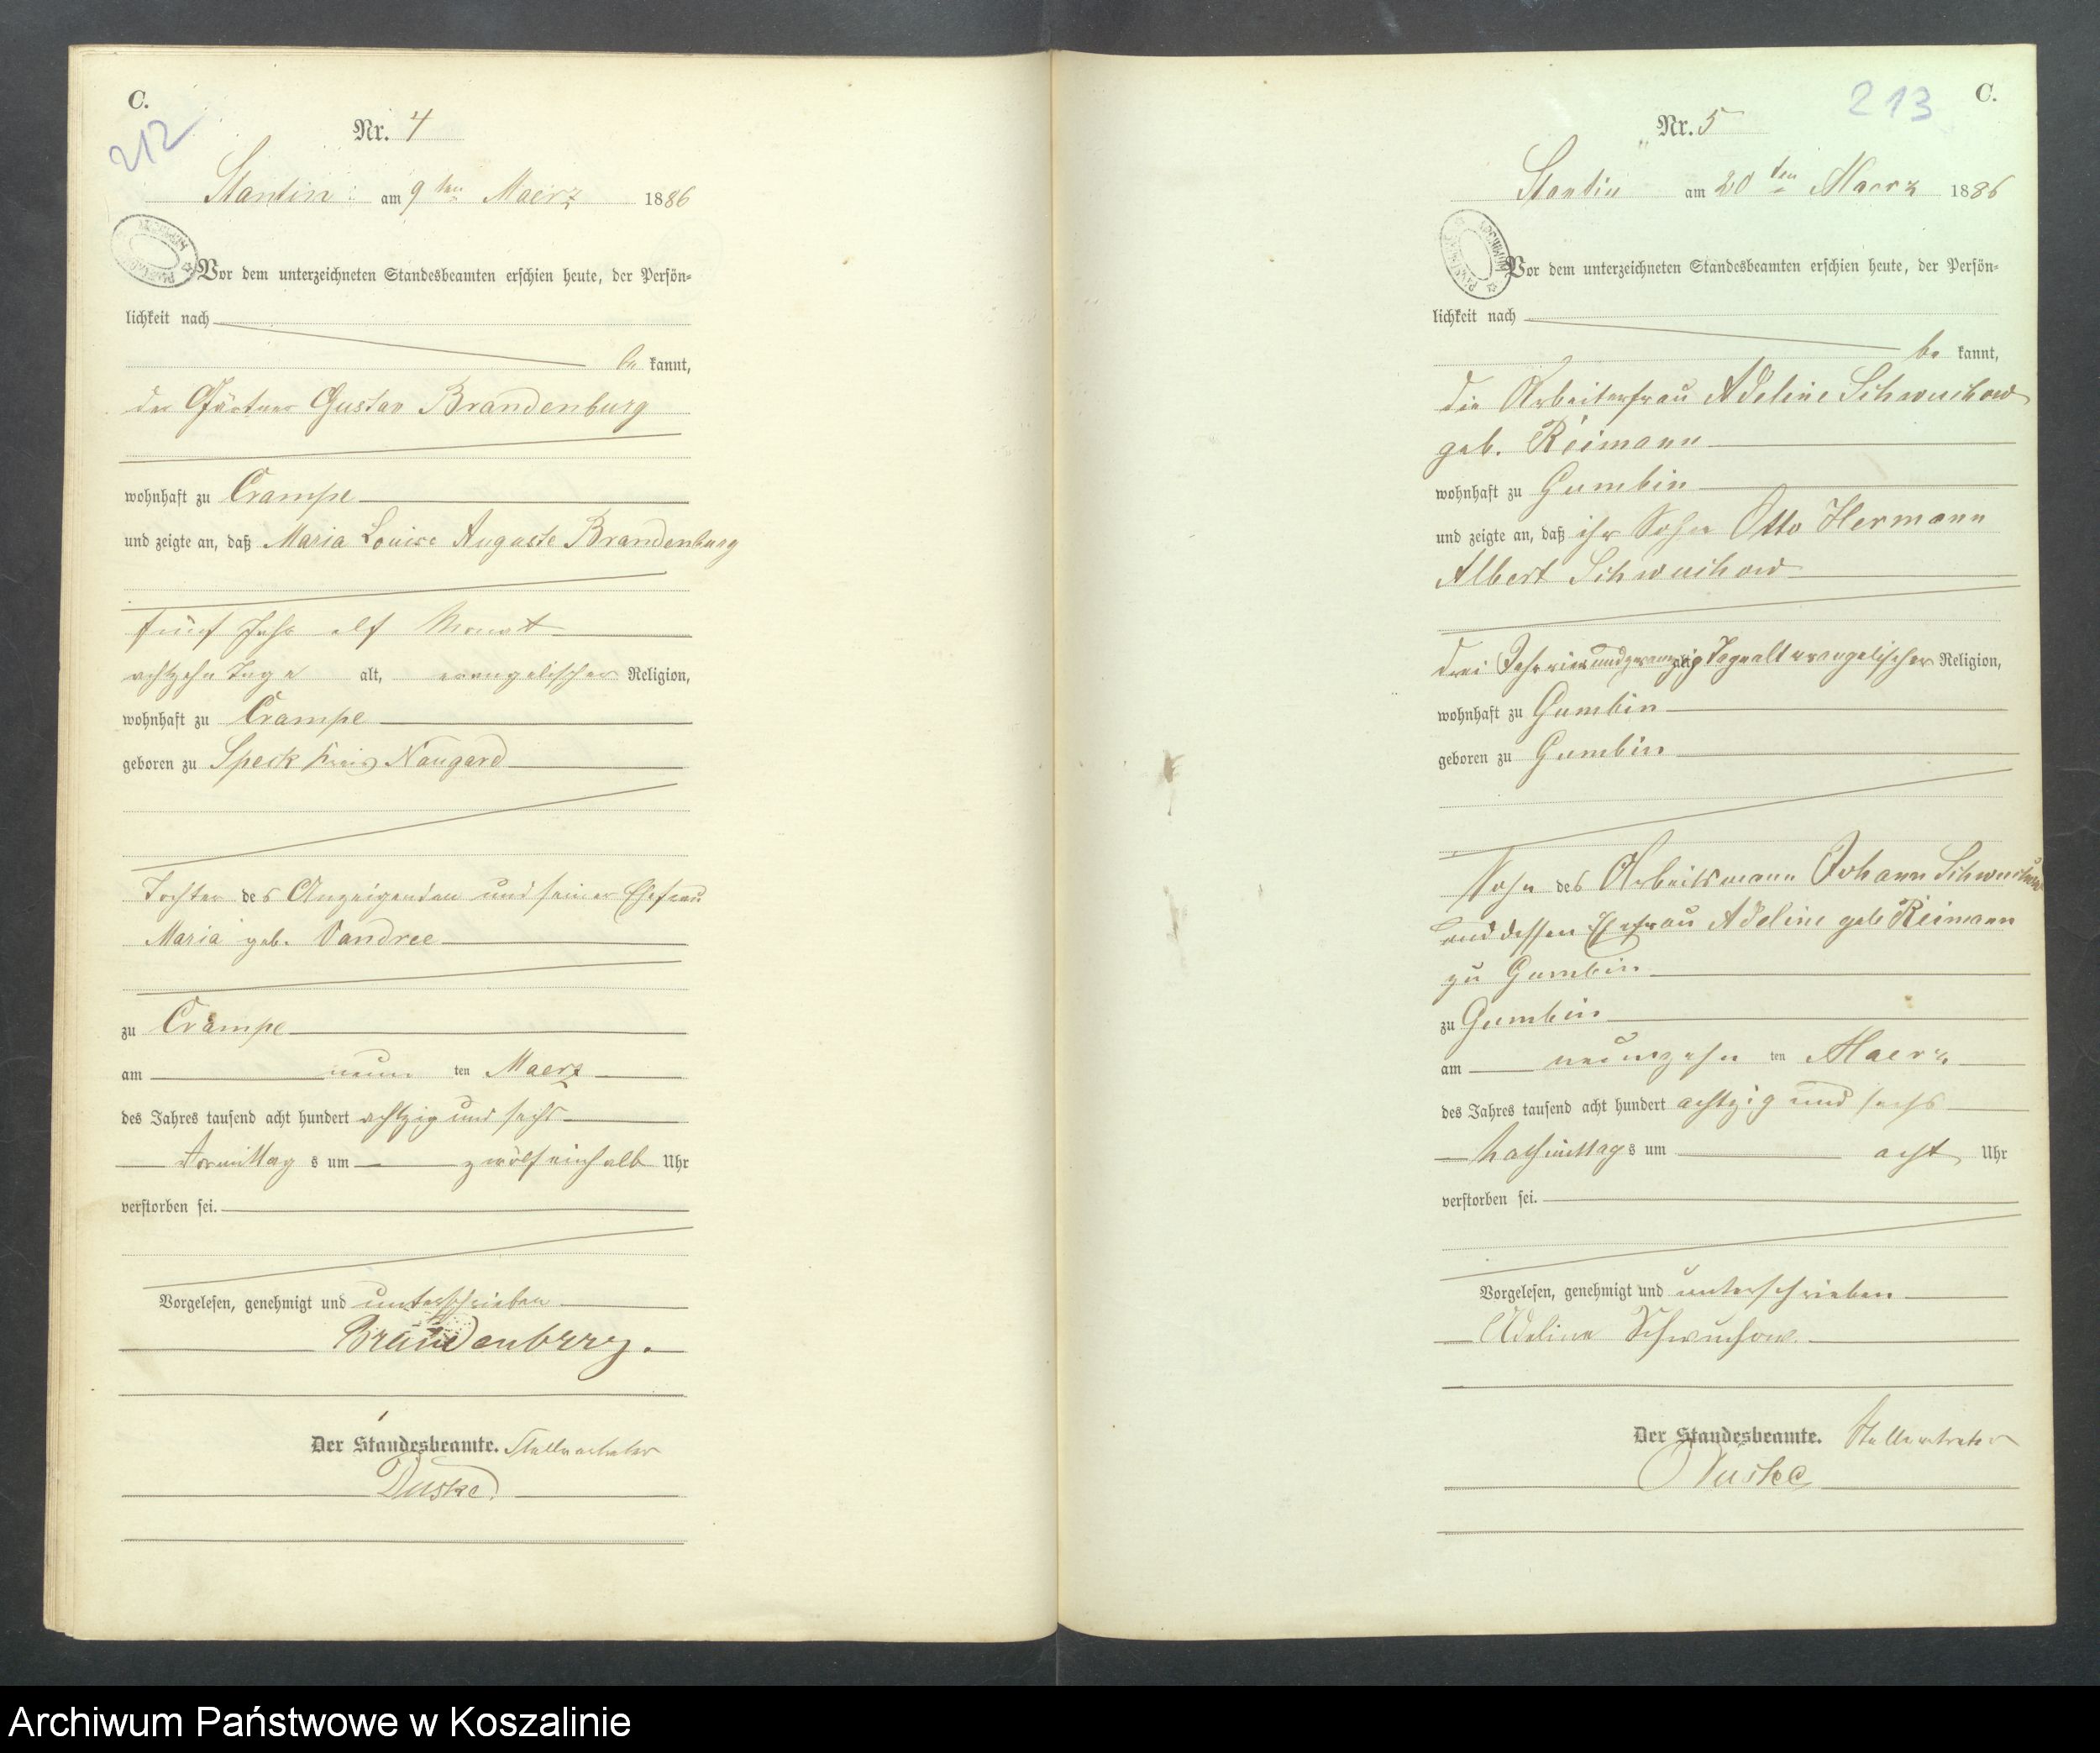 C.
212
Nr. 4
Stantin am 9ten Maerz 1886
Vor dem unterzeichneten Standesbeamten erschien heute, der Persön-
lichkeit nach
be kannt,
der Gärtner Gustav Brandenburg
wohnhaft zu Crampe
und zeigte an, daß Maria Louise Auguste Brandenburg
fünf Jahr elf Monat
achtzehn Tage alt, evangelischer Religion,
wohnhaft zu Crampe
geboren zu Speck Kreis Naugard
Tochter des Anzeigenden und seiner Ehefrau
Maria geb. Vandree
zu Crampe
am neun ten Maerz
des Jahres tausend acht hundert achtzig und sechs
Vormittag s um zwölf einhalb Uhr
verstorben sei.
Vorgelesen, genehmigt und unterschrieben
Brandenburg.
Der Standesbeamte. Stellvertreter
Duske
C.
213
Nr. 5
Stantin am 20ten Maerz 1886
Vor dem unterzeichneten Standesbeamten erschien heute, der Persön-
lichkeit nach
be kannt,
die Arbeiterfrau Adeline Schwuchow
geb. Reimann
wohnhaft zu Gumbin
und zeigte an, daß ihr Sohn Otto Hermann
Albert Schwuchow
drei Jahr Tage alt evangelischer Religion,
wohnhaft zu Gumbin
geboren zu Gumbin
Sohn des Arbeitsmann Johann Schwuchow
und dessen Ehefrau Adeline geb Reimann
zu Gumbin
zu Gumbin
am neunzehn ten Maerz
des Jahres tausend acht hundert achtzig und sechs
Nachmittag s um acht Uhr
verstorben sei.
Vorgelesen, genehmigt und unterschrieben
Adeline Schwuchow.
Der Standesbeamte. Stellvertreter
Duske
Archiwum Państwowe w Koszalinie